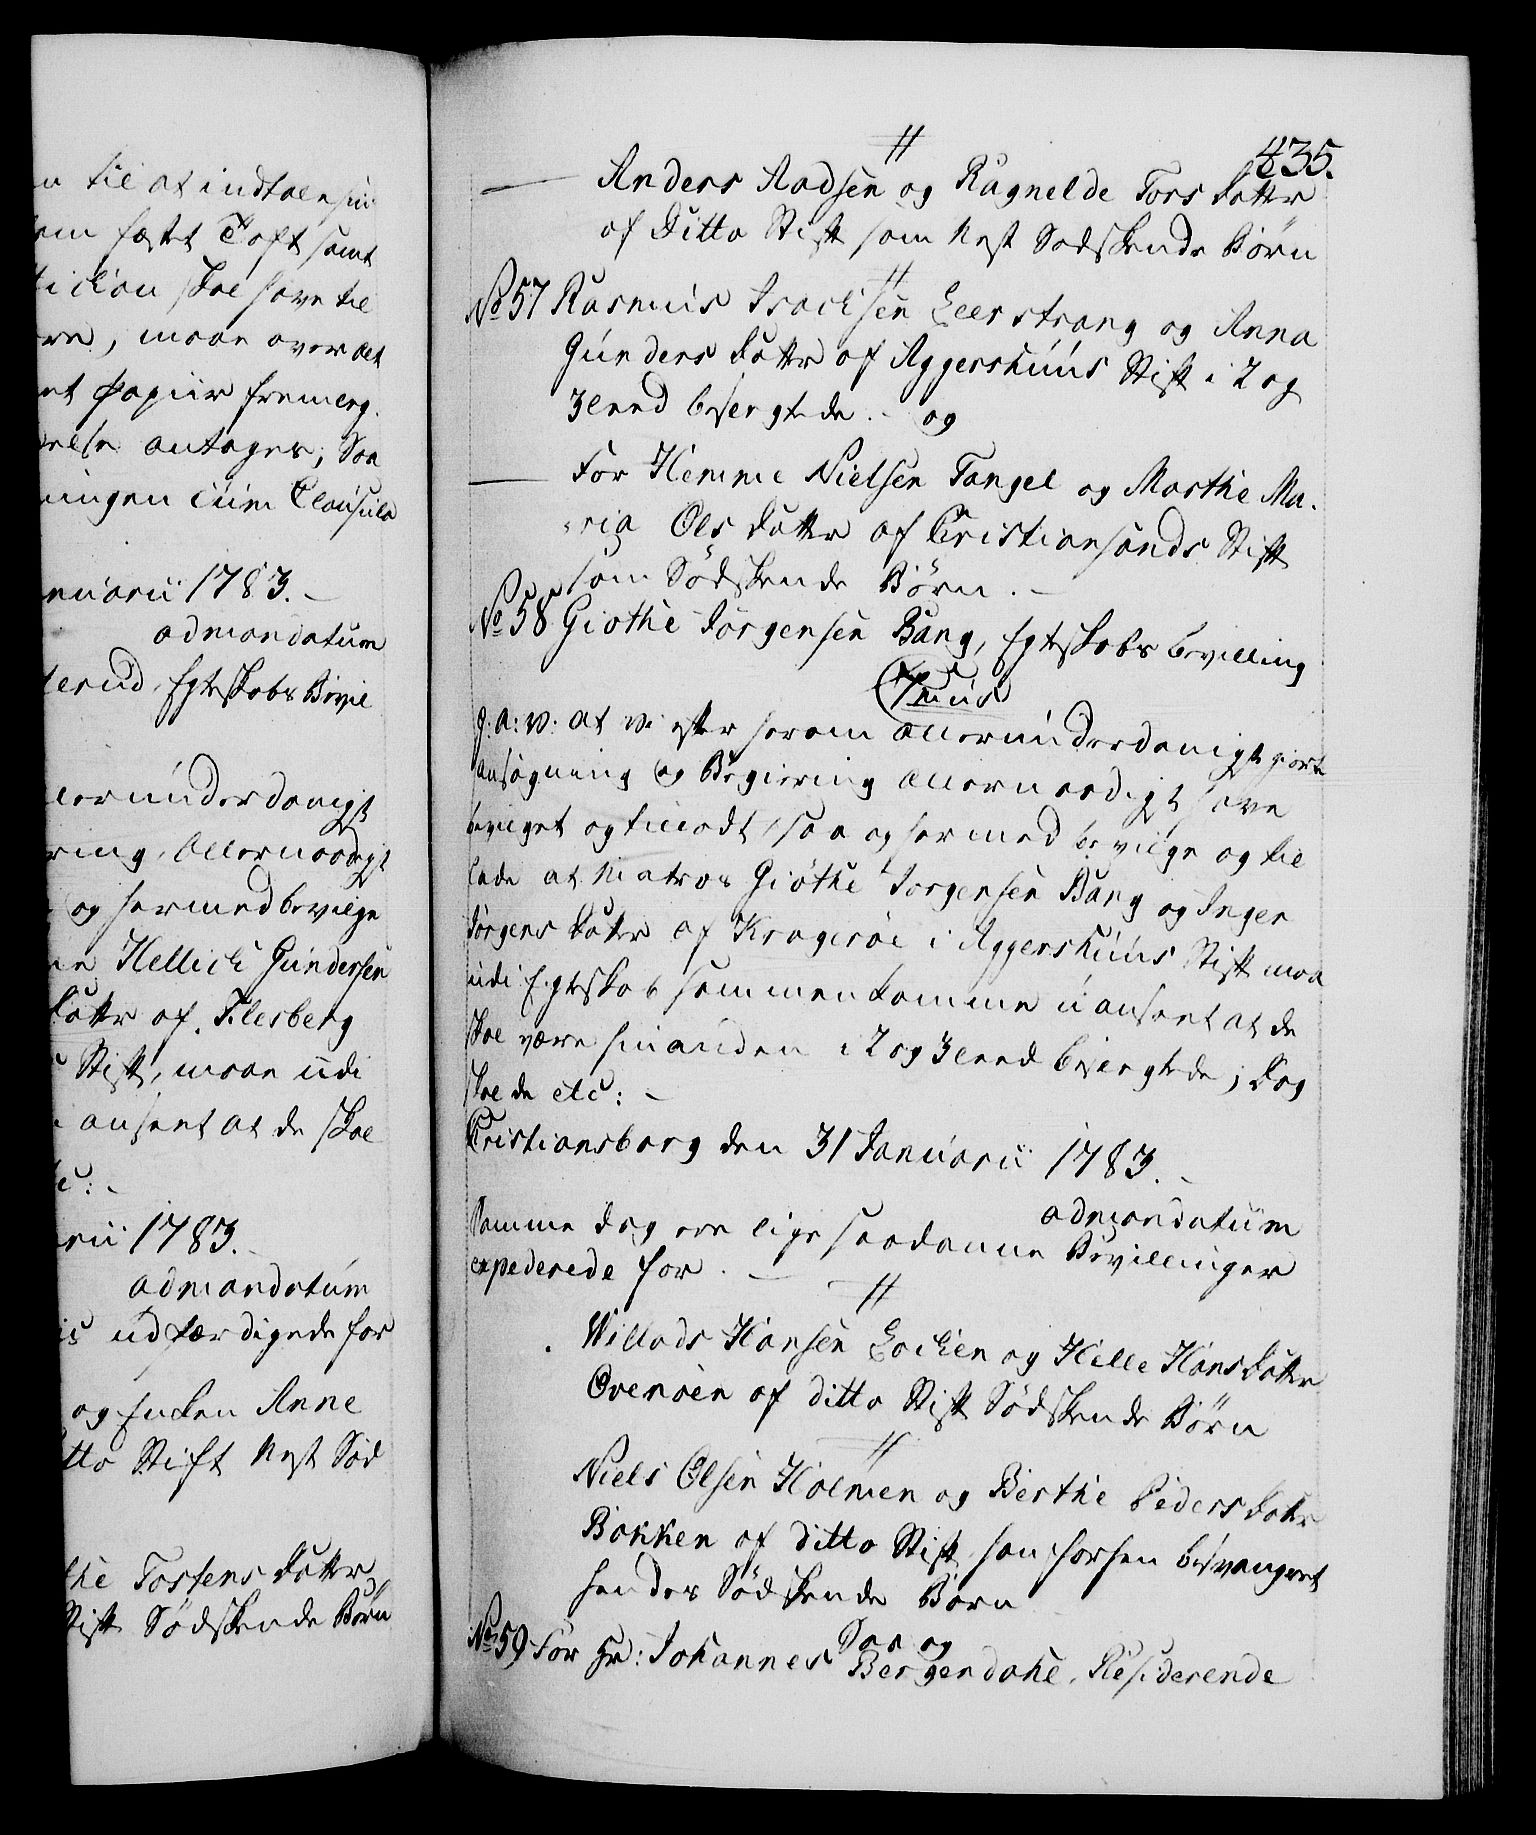 n til at indtale sin
em fæstt Toft samt
ition skal have til
re, maae over det
et Papiir fremerg.
relse antages; Saa
ningen cum Clausula
nuarii 1783.
ad mandatum
terud, Egteskabs Bevil
llerunderdanigst
ring, Allernaadigst
og hermed bevilge
Hellich Gundersen
datter af Flesberg
Stift, maae udi
anseet at de skal
tc:
arii 1783.
ad mandatum
is udfærdigede for
og Enken Anne
itto Stift Nest Sød
the Tostens datter
Stift Sødskende Børn
435.
//
Anders Aadsen og Ragnelde Tors datter
af Ditto Stift som Nest Sødskende Børn
//
No 57 Rasmus Isachsen Leerstrang og Anna
Gunders datter af Aggershuus Stift i 2 og
3 leed besvogrede. og
For Hemme Nielsen Tangel og Marthe Ma-
ria Ols datter af Cristiansands Stift
som Sødskende Børn.
No 58 Giøthe Jørgensen Bang, Egteskabs bevilling
7 nus
g: a: v: at vi efter herom allerunderdanigst giorte
ansøgning og Begiering allernaadigst have
bevilget og tilladt, saa og hermed bevilge og til
lade at Matros Giöthe Jorgensen Bang og Inger
Jørgens datter af Kragerøe i Aggershuus Stift maa
udi Egteskab sammenkomme uanseet at de
skal være hinanden i 2 og 3 leed besvogrede; dog
skal de etc:
Cristiansborg den 31 Januarii 1783.
ad mandatum
Samme dag ere lige saadanne Bevillinger
expederede for.
//
Willads Hansen Lochen og Helle Hansdatter
Ovenøen af ditto Stift Sødskende Børn
//
Niels Olsen Holmen og Berthe Peders datter
Bakken af ditto Stift, som forhen besvangret
hendes Sødskende Børn
No 59 For Hr: Johannes Das og Bergendahl, Residerende